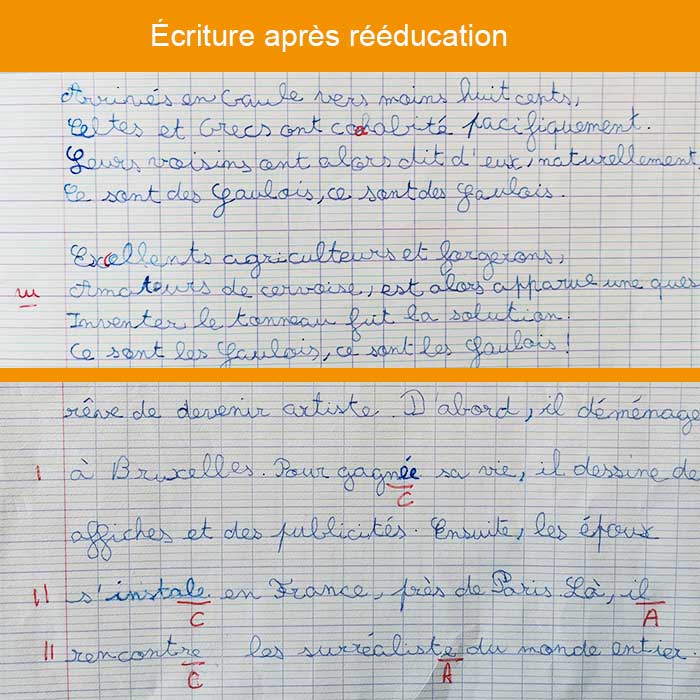 Écriture après rééducation
Arrivés en Gaule vers moins huit cents,
Celtes et Grecs ont cohabité pacifiquement.
Leurs voisins ont alors dit d'eux, naturellement
Ce sont des Gaulois, ce sont des Gaulois.
Excellents agriculteurs et forgerons,
m Amateurs de cervoise, est alors apparue une ques
Inventer le tonneau fut la solution.
Ce sont les Gaulois, ce sont les Gaulois !
rêve de devenir artiste. D'abord, il déménage
I à Bruxelles. Pour gagnée sa vie, il dessine de
C
affiches et des publicités. Ensuite, les époux
II s'instale en France, près de Paris. Là, il
C A
II rencontre les surréaliste du monde entier.
C A